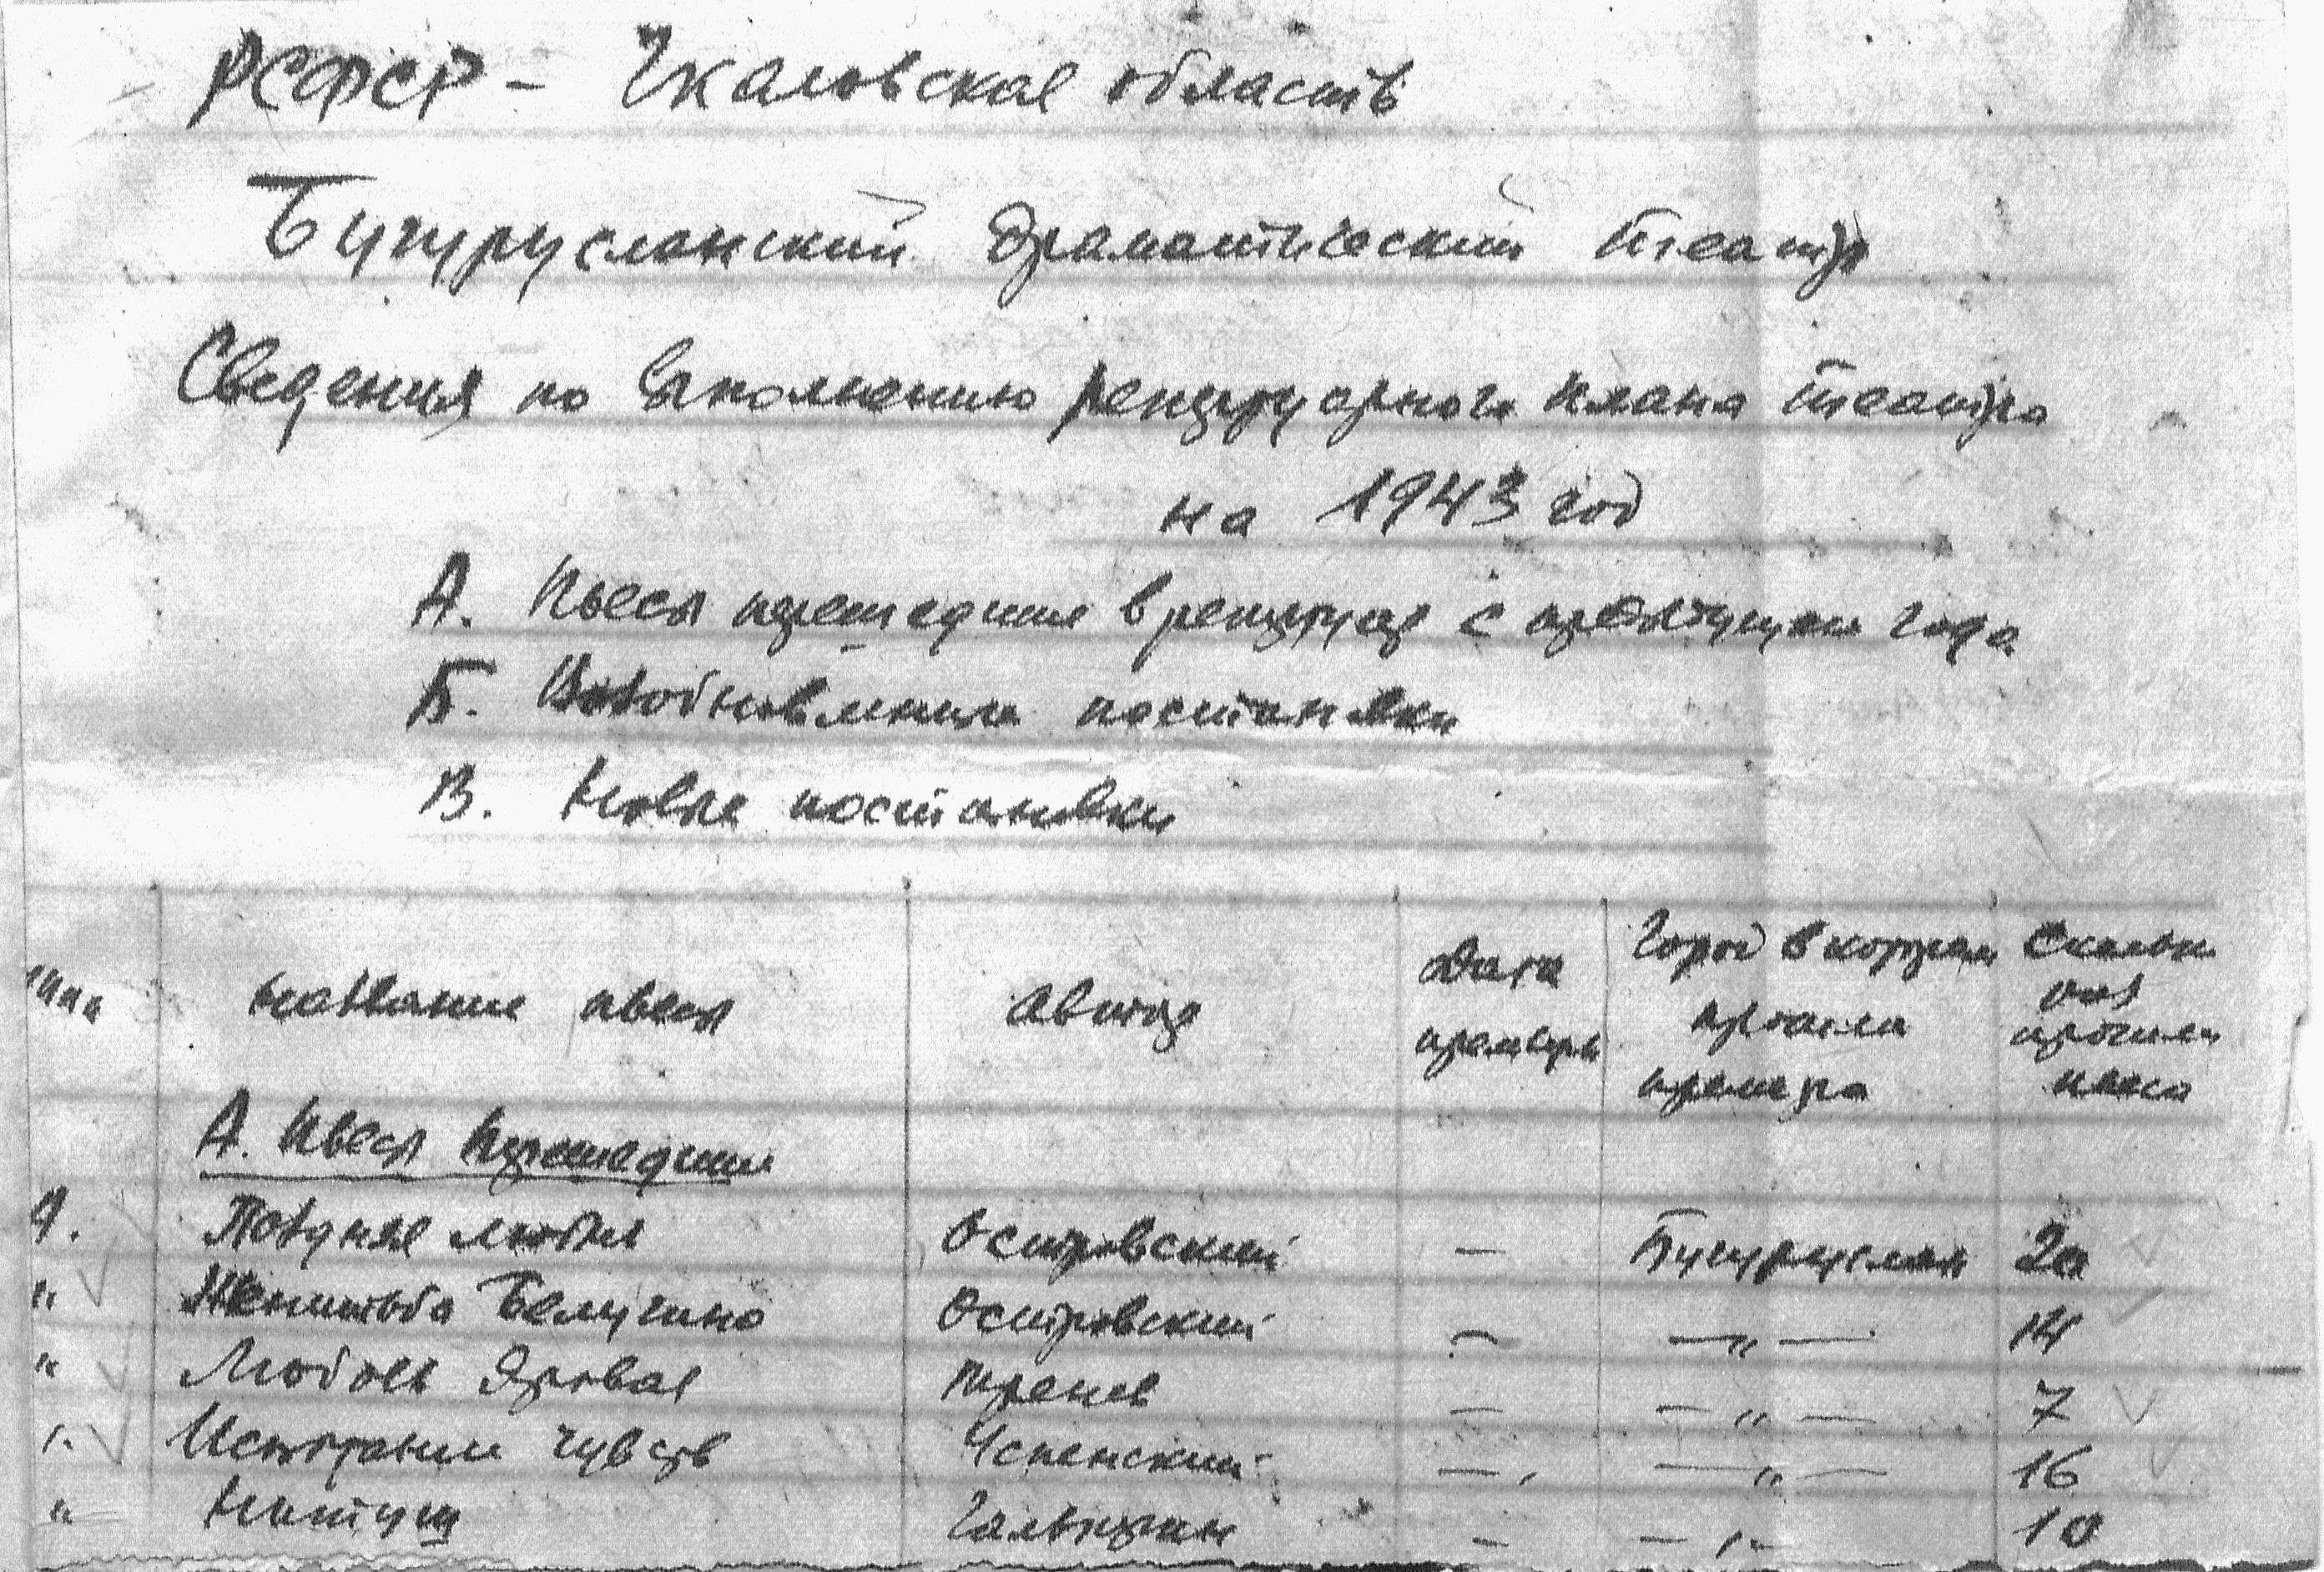 РСФСР – Чкаловская область
Бугурусланский драматический театр
Сведения по выполнению репертуарного плана театра
на 1943 год
А. Пьесы перешедшие в репертуар с предыдущего года
Б. Возобновленные постановки
В. Новые постановки
Название пьесы Автор Дата премьеры Город в котором прошла премьера Сколько раз прошла пьеса
А. Пьесы перешедшие
1. Поздняя любовь Островский – Бугуруслан 20
" Женитьба Белугина Островский – – " – 14
" Любовь Яровая Тренев – – " – 7
" Испытание чувств Успенский – – " – 16
" Нитуш – – " – 10